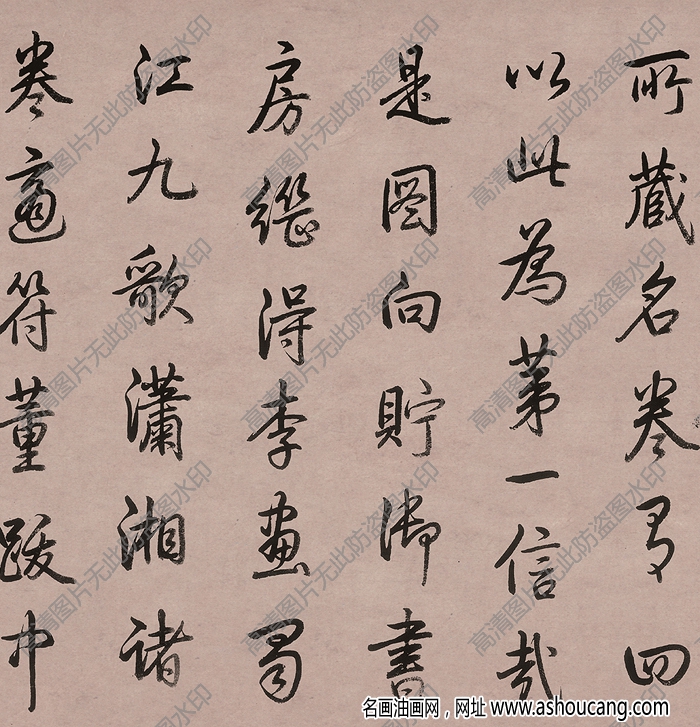 所藏名卷有四
以此為第一信哉
是圖向貯御書
房繼得李畫蜀
江九歌瀟湘諸
卷適符董跋中
高清图片无此防盗图水印
名画油画网，网址 www.ashoucang.com